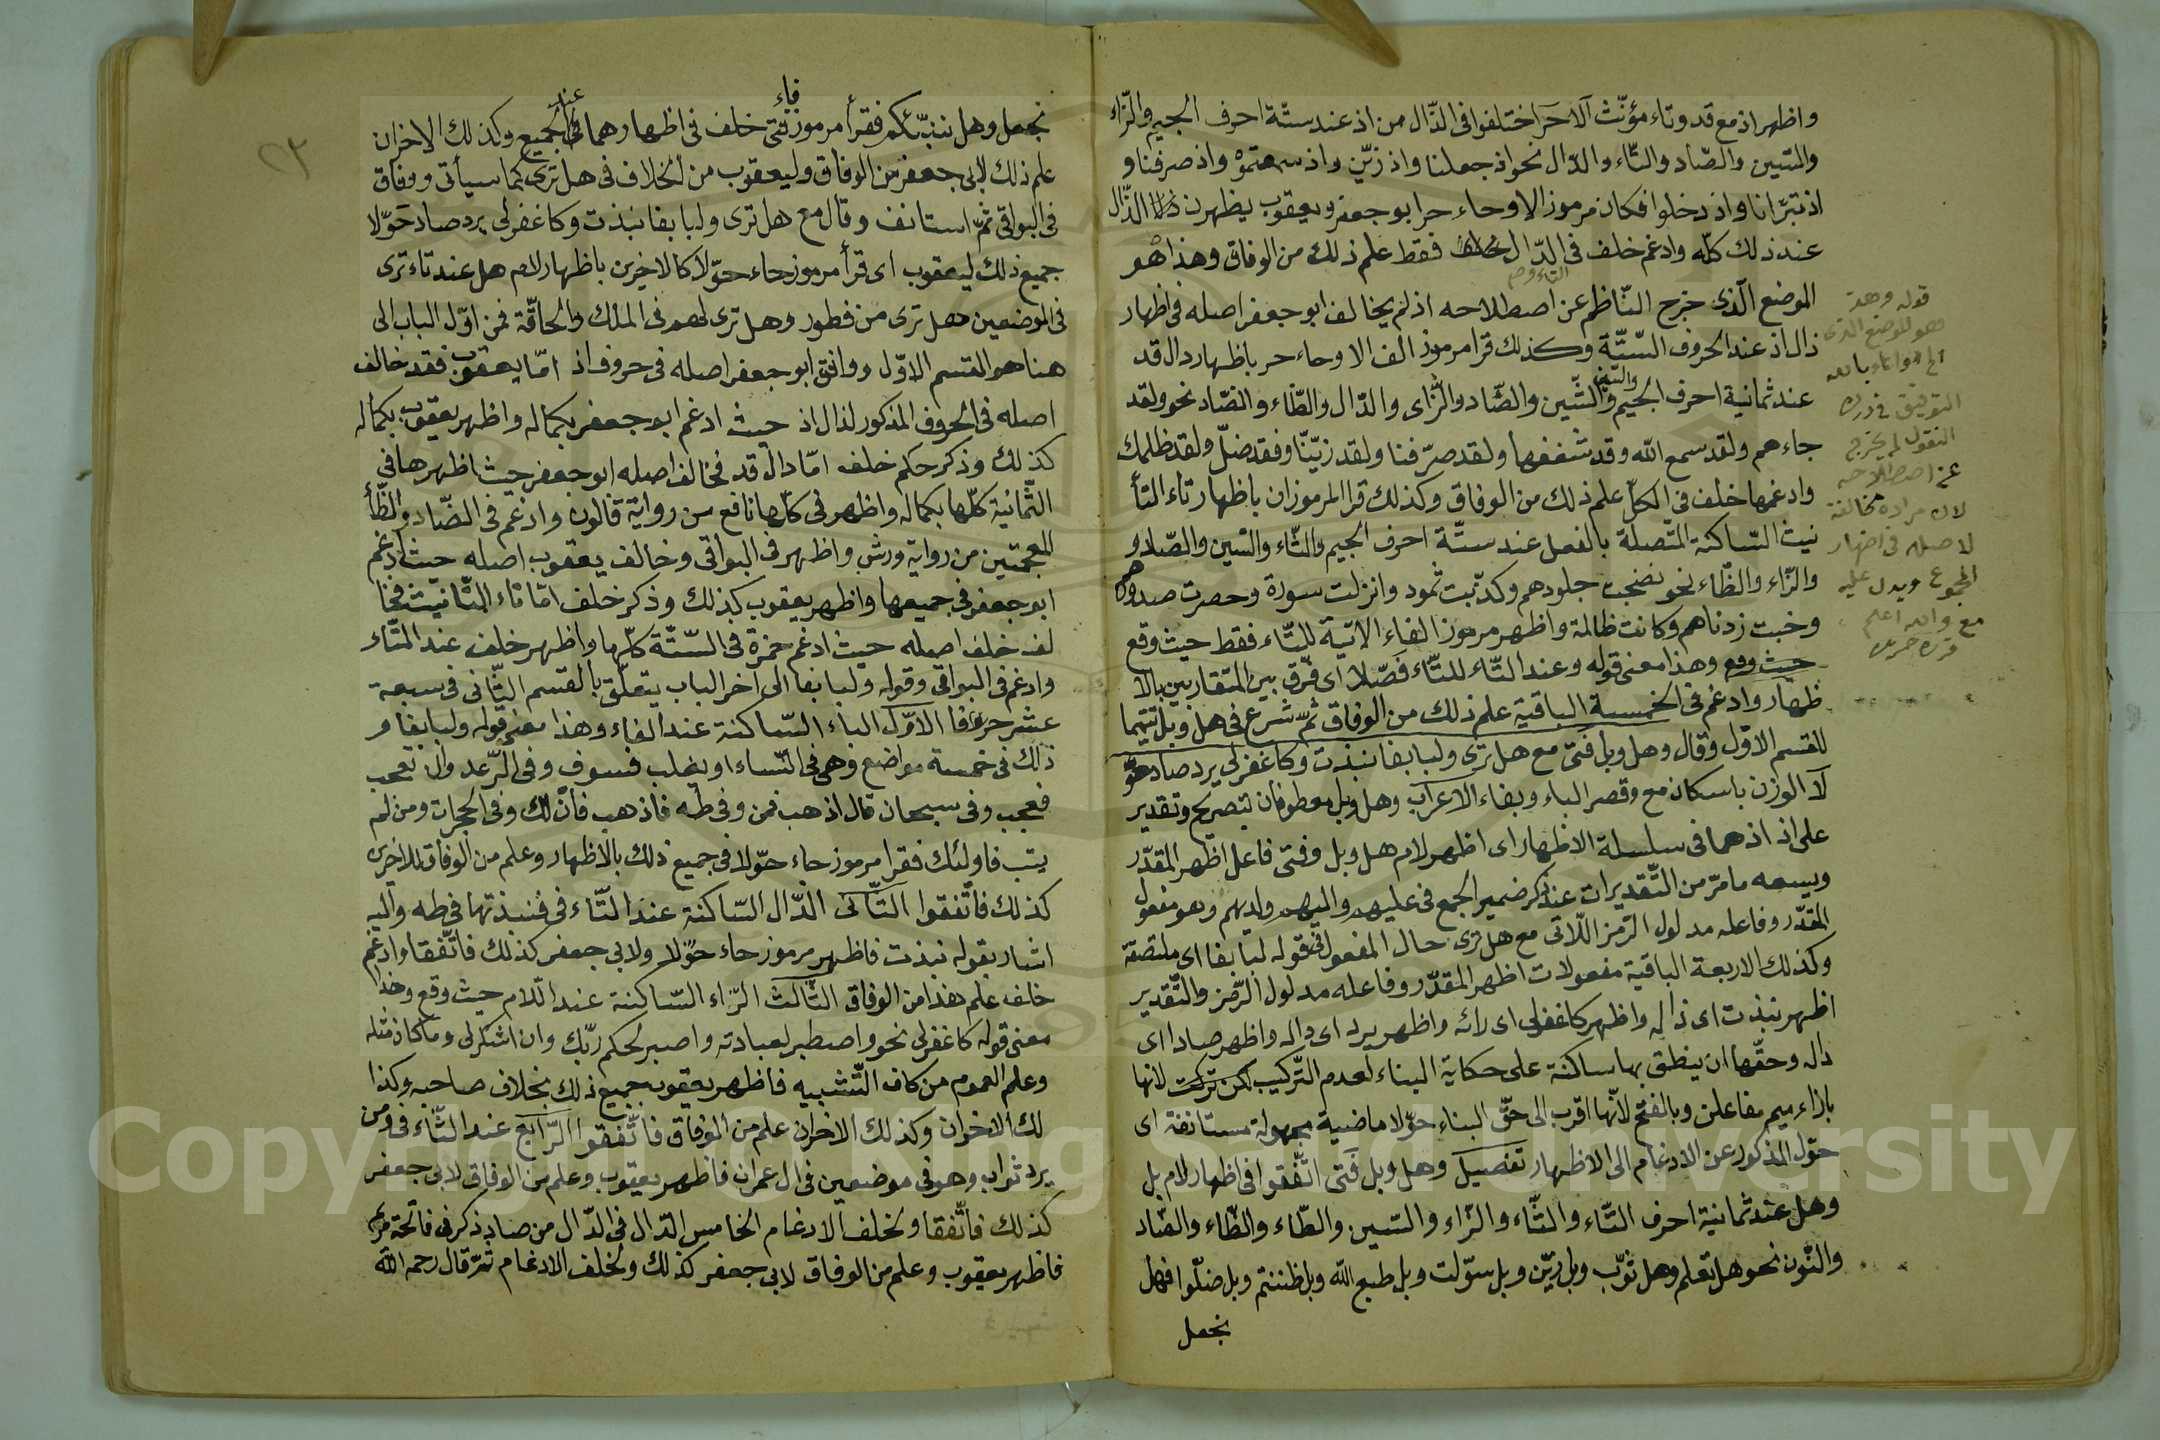 واظهر اذ مع قد وتاء مؤنّث آلا حَز اختلفوا فى الذّال من اذ عند ستّة احرف الجيم والزّاء
والسّين والصّاد والتّاء والدّال نحو اذ جعلنا واذ زيّن واذ سمعتموه واذ صرفنا و
اذ تبرّا واذ دخلوا فكان مرموز الا وحاء حز ابو جعفر ويعقوب يظهرن الذّال
عند ذلك كلّه وادغم خلف فى الدّال التاء و فقط علم ذلك من الوفاق وهذا هو
الموضع الّذى خرج النّاظم عن اصطلاحه اذ لم يخالف ابو جعفر اصله فى اظهار
ذال اذ عند الحروف السّتّة وكذلك قرا مرموز الف الا وحاء حز باظهار دال قد
عند ثمانية احرف الجيم والسّين والشّين والصّاد والزّاى والذّال والظّاء والضّاد نحو ولقد
جاءهم ولقد سمع الله وقد شغفها ولقد صرّفنا ولقد زيّنّا وفقد ضلّ ولقد ظلمك
وادغمها خلف فى الكلّ علم ذلك من الوفاق وكذلك قرا المرموزان باظهار تاء التأ
نيث السّاكنة المتّصلة بالفعل عند ستّة احرف الجيم والثّاء والسّين والصّاد و
والزّاء والظّاء نحو نضجت جلودهم وكذّبت ثمود وانزلت سورة وحصرت صدورهم
وخبت زدناهم وكانت ظالمة واظهر مرموز الفاء الاتية للثّاء فقط حيث وقع
حيث وقع وهذا معنى قوله وعند الثّاء للتّاء فَصّلا اى فرّق بين المتقاربين بالا
ظهار وادغم فى الخمسة الباقية علم ذلك من الوفاق ثمّ شرع فى هل وبل تتميما
للقسم الاوّل وقال وهل وبل فتى مع هل ترى ولبا بفا نبذت وكاغفر لى يرد صاد حوّ
لا الوزن باسكان مع وقصر الباء وبفاء الاعراب وهل وبل معطوفان بتصريح وتقدير
على اذ اذ هما فى سلسلة الاظهار اى اظهر لام هل وبل وفتى فاعل اظهر المقدّر
ويسعه ما مرّ من التّقديرات عند ذكر ضمير الجمع فى عليهم واليهم ولديهم وهو مفعول
المقدّر وفاعله مدلول الرّمز اللّاتى مع هل ترى حال المفعول فى قوله لبا بفا اى ملتصقة
وكذلك الاربعة الباقية مفعولات اظهر المقدّر وفاعله مدلول الرّمز والتّقدير
اظهر نبذت اى ذاله واظهر كاغفر لى اى رائه واظهر يرد اى داله واظهر صاد اى
داله وحقّها ان ينطق بها ساكنة على حكاية البناء لعدم التّركيب لكن تركت لانها
بازاء ميم مفاعلن وبالفتح لانّها اقرب الى حقّ البناء حوّلا ماضية مجهولة مستانفة اى
حوّل المذكور عن الادغام الى الاظهار تفصيل وهل وبل فتى اتّفقوا فى اظهار لام بل
وهل عند ثمانية احرف التّاء والثّاء والزّاء والسّين والطّاء والظّاء والضّاد
والنّون نحو هل تعلم وهل ثوّب وبل زيّن وبل سوّلت وبل طبع الله وبل ظننتم وبل ضلّوا فهل
نجعل
قوله وهذ
هو الموضع الذى
التوفيق
النقول لم يخرج
عن اصطلاحه
لان مراده مخالفة
لاصله فى اظهار
المجموع ويدل عليه
مع والله اعلم
نجعل وهل ننبّئكم فقرأ مرموز فاء فتى خلف فى اظهارهما عند الجميع وكذلك الاخران
علم ذلك لابى جعفر من الوفاق وليعقوب من الخلاف فى هل ترى كما سيأتى ووفاق
فى البواقى ثمّ استانف وقال مع هل ترى ولبا بفا نبذت وكاغفر لى يرد صاد حَوّلا
جميع ذلك ليعقوب اى قرأ مرموز حاء حوّلا كالاخيرين باظهار لام هل عند تاء ترى
فى الموضعين هل ترى من فطور وهل ترى لهم فى الملك والحاقّة فمن اوّل الباب الى
هنا هو القسم الاوّل ووافق ابو جعفر اصله فى حروف اذ امّا يعقوب فقد خالف
اصله فى الحروف المذكور لذال اذ حيث ادغم ابو جعفر بكماله واظهر يعقوب بكماله
كذلك وذكر حكم خلف امّا دال قد فخالف اصله ابو جعفر حيث اظهرها فى
الثّمانية كلّها بكماله واظهر فى كلّها نافع من رواية قالون وادغم فى الضّاد والظّأ
المعجمتين من رواية ورش واظهر فى البواقى وخالف يعقوب اصله حيث ادغم
ابو جعفر فى جميعها واظهر يعقوب كذلك وذكر خلف امّا تاء التّانيث فخا
لف خلف اصله حيث ادغم حمزة فى السّتّة كلّها واظهر خلف عند الثّاء
وادغم فى البواقى وقوله ولبا بفا الى اخر الباب يتعلّق بالقسم الثّانى فى سبعة
عشر حرفا الاوّل الباء السّاكنة عند الفاء وهذا معنى قوله ولبا بفا و
ذلك فى خمسة مواضع وهى فى النّساء او يغلب فسوف وفى الرّعد وان تعجب
فعجب وفى سبحان قال اذهب فمن وفى طه فاذهب فانّ لك وفى الحجرات ومن لم
يتب فاولئك فقرا مرموز حاء حوّلا فى جميع ذلك بالاظهار وعلم من الوفاق للاخرين
كذلك فاتّفقوا الثّانى الذّال السّاكنة عند التّاء فى فنبذتها فى طه واليه
اشار بقوله نبذت فاظهر مرموز حاء حوّلا ولابى جعفر كذلك فاتّفقا وادغم
خلف علم هذا من الوفاق الثّالث الرّاء السّاكنة عند اللّام حيث وقع وهذا
معنى قوله كاغفر لى نحو واصطبر لعبادته واصبر لحكم ربّك وان اشكر لى وما كان مثله
وعلم العموم من كاف التّشبيه فاظهر يعقوب جميع ذلك بخلاف صاحبه وكذا
لك الاخران وكذلك الاخران علم من الوفاق فاتّفقوا الرّابع عند الثّاء فى ومن
يرد ثواب وهو فى موضعين فى ال عمران فاظهر يعقوب وعلم من الوفاق لابى جعفر
كذلك فاتّفقا ولخلف الادغام الخامس الدّال فى الذّال من صاد ذكر فى فاتحة مريم
فاظهر يعقوب وعلم من الوفاق لابى جعفر كذلك ولخلف الادغام ثمّ قال رحمه الله
Copyright © King Saud University